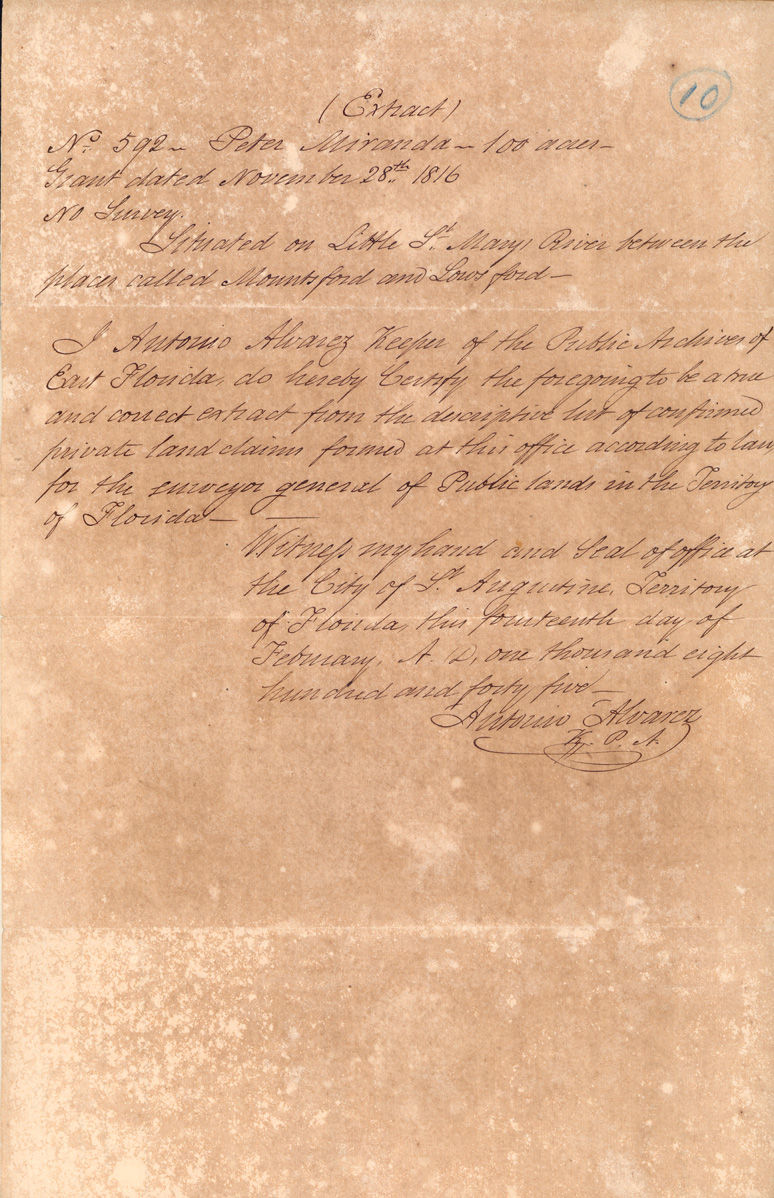 10
(Extract)
No. 592 ~ Peter Miranda ~ 100 acres —
Grant dated November 28th. 1816
No Survey.
Situated on Little St. Marys River between the
places called Mountsford and Lowsford —
I Antonio Alvarez Keeper of the Public Archives of
East Florida, do hereby Certify the foregoing to be a true
and correct extract from the descriptive list of confirmed
private land claims formed at this office according to law
for the surveyor general of Public lands in the Territory
of Florida — —
Witness my hand and Seal of office at
the City of St. Augustine, Territory
of Florida, this fourteenth day of
February, A. D, one thousand eight
hundred and forty five —
Antonio Alvarez
K. P. A.